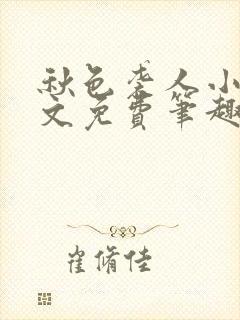 秋色袭人小
文免费筆趣
崔脩佳